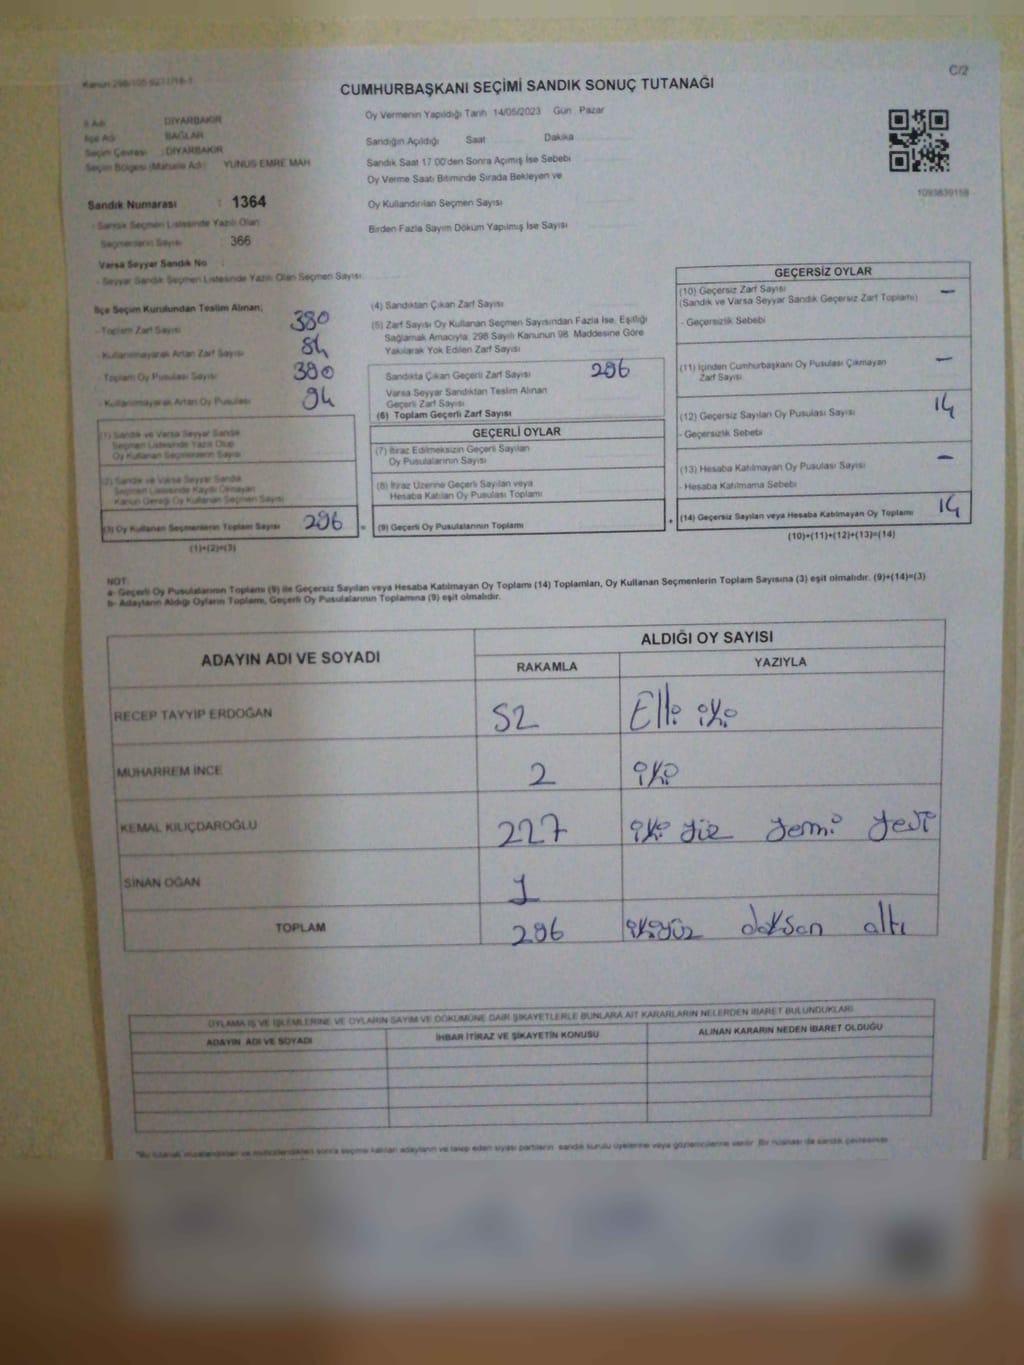 C/2
CUMHURBAŞKANI SEÇİMİ SANDIK SONUÇ TUTANAĞI
İl Adı DİYARBAKIR
İlçe Adı BAĞLAR
Seçim Çevresi : DİYARBAKIR
Seçim Bölgesi (Mahalle Adı) YUNUS EMRE MAH
Sandık Numarası : 1364
- Sandık Seçmen Listesinde Yazılı Olan
Seçmenlerin Sayısı 366
Varsa Seyyar Sandık No
- Seyyar Sandık Seçmen Listesinde Yazılı Olan Seçmen Sayısı
Oy Vermenin Yapıldığı Tarih 14/05/2023 Gün Pazar
Sandığın Açıldığı Saat Dakika
Sandık Saat 17 00'den Sonra Açımış İse Sebebi
Oy Verme Saati Bitiminde Sırada Bekleyen ve
Oy Kullandırılan Seçmen Sayısı
Birden Fazla Sayım Döküm Yapılmış İse Sayısı
İlçe Seçim Kurulundan Teslim Alınan;
- Toplam Zarf Sayısı 380
- Kullanılmayarak Artan Zarf Sayısı 84
- Toplam Oy Pusulası Sayısı 390
- Kullanılmayarak Artan Oy Pusulası 94
(1) Sandık ve Varsa Seyyar Sandık
Seçmen Listesinde Yazılı Olup
Oy Kullanan Seçmenlerin Sayısı
(2) Sandık ve Varsa Seyyar Sandık
Seçmen Listesinde Kaydı Olmayan
Kanun Gereği Oy Kullanan Seçmen Sayısı
(3) Oy Kullanan Seçmenlerin Toplam Sayısı 296
(1)+(2)=(3)
(4) Sandıktan Çıkan Zarf Sayısı
(5) Zarf Sayısı Oy Kullanan Seçmen Sayısından Fazla İse, Eşitliği
Sağlamak Amacıyla; 298 Sayılı Kanunun 98. Maddesine Göre
Yakılarak Yok Edilen Zarf Sayısı
Sandıkta Çıkan Geçerli Zarf Sayısı 296
Varsa Seyyar Sandıktan Teslim Alınan
Geçerli Zarf Sayısı
(6) Toplam Geçerli Zarf Sayısı
GEÇERLİ OYLAR
(7) İtiraz Edilmeksizin Geçerli Sayılan
Oy Pusulalarının Sayısı
(8) İtiraz Üzerine Geçerli Sayılan veya
Hesaba Katılan Oy Pusulası Toplamı
= (9) Geçerli Oy Pusulalarının Toplamı
GEÇERSİZ OYLAR
(10) Geçersiz Zarf Sayısı –
(Sandık ve Varsa Seyyar Sandık Geçersiz Zarf Toplamı)
- Geçersizlik Sebebi
(11) İçinden Cumhurbaşkanı Oy Pusulası Çıkmayan –
Zarf Sayısı
(12) Geçersiz Sayılan Oy Pusulası Sayısı 14
- Geçersizlik Sebebi
(13) Hesaba Katılmayan Oy Pusulası Sayısı –
- Hesaba Katılmama Sebebi
+ (14) Geçersiz Sayılan veya Hesaba Katılmayan Oy Toplamı 14
(10)+(11)+(12)+(13)=(14)
NOT:
a- Geçerli Oy Pusulalarının Toplamı (9) ile Geçersiz Sayılan veya Hesaba Katılmayan Oy Toplamı (14) Toplamları, Oy Kullanan Seçmenlerin Toplam Sayısına (3) eşit olmalıdır. (9)+(14)=(3)
b- Adayların Aldığı Oyların Toplamı, Geçerli Oy Pusulalarının Toplamına (9) eşit olmalıdır.
ADAYIN ADI VE SOYADI ALDIĞI OY SAYISI
RAKAMLA YAZIYLA
RECEP TAYYİP ERDOĞAN 52 Elli iki
MUHARREM İNCE 2 iki
KEMAL KILIÇDAROĞLU 227 iki yüz yemi yedi
SİNAN OĞAN 1
TOPLAM 296 ikiyüz doksan altı
OYLAMA İŞ VE İŞLEMLERİNE VE OYLARIN SAYIM VE DÖKÜMÜNE DAİR ŞİKAYETLERLE BUNLARA AİT KARARLARIN NELERDEN İBARET BULUNDUKLARI
ADAYIN ADI VE SOYADI İHBAR İTİRAZ VE ŞİKAYETİN KONUSU ALINAN KARARIN NEDEN İBARET OLDUĞU